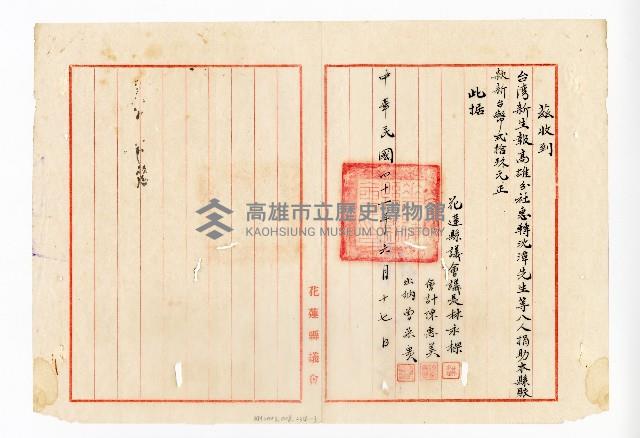 茲收到
台湾新生報高雄分社惠轉沈漳先生等八人捐助本縣賑
款新台幣弍拾玖元正
此据
花蓮縣議會議長林永樑
會計陳惠美
出納曾
中華民國四十一年六月十七日
花蓮縣議會
高雄市立歷史博物館
KAOHSIUNG MUSEUM OF HISTORY